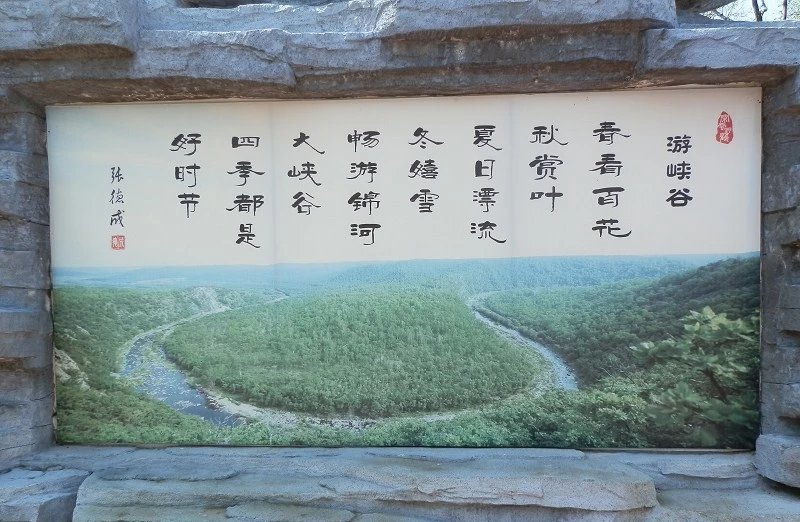 游峡谷
春看百花
秋赏叶
夏日漂流
冬嬉雪
畅游锦河
大峡谷
四季都是
好时节
张德成